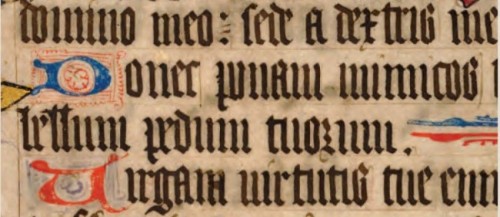 domino meo: sede a dextris me
Donec ponam inimicos
bellum pedum tuorum.
Virgam virtutis tue em